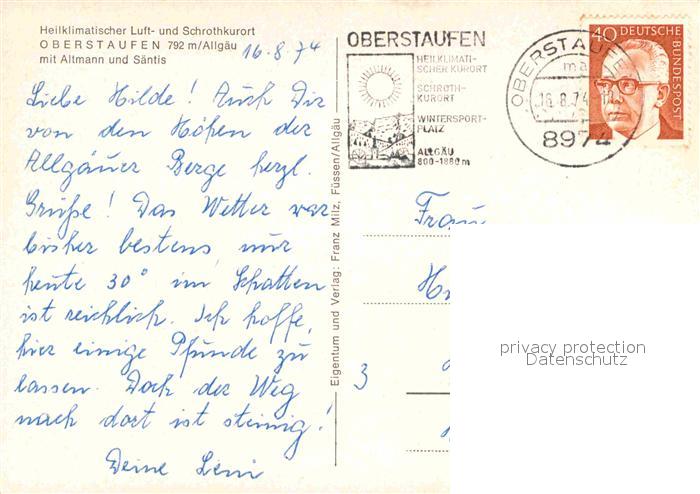 Heilklimatischer Luft- und Schrothkurort
OBERSTAUFEN 792 m/Allgäu
mit Altmann und Säntis
16.8.74
Liebe Hilde! Auch Dir
von den Höhen der
Allgäuer Berge herzl.
Grüße! Das Wetter war
bisher bestens, nur
heute 30° im Schatten
ist reichlich. Ich hoffe,
hier einige Pfunde zu
lassen. Doch der Weg
nach dort ist steinig!
Deine Leni
Eigentum und Verlag: Franz Milz, Füssen/Allgäu
OBERSTAUFEN
HEILKLIMATI-
SCHER KURORT
SCHROTH-
KURORT
WINTERSPORT-
PLATZ
ALLGÄU
800-1880 m
OBERSTAUF
16.8.74
8974
40 DEUTSCHE
BUNDESPOST
Frau
3
privacy protection
Datenschutz